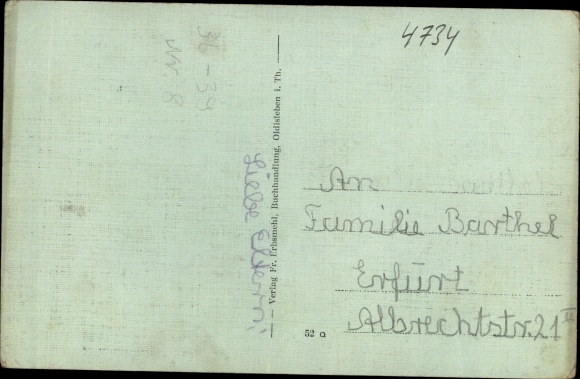 4734
36-39
Nr. 8
Liebe Eltern!
— Verlag Fr. Erbsmehl, Buchhandlung, Oldisleben i. Th. —
An
Familie Barthel
Erfurt
Albrechtstr. 21 II
52 a